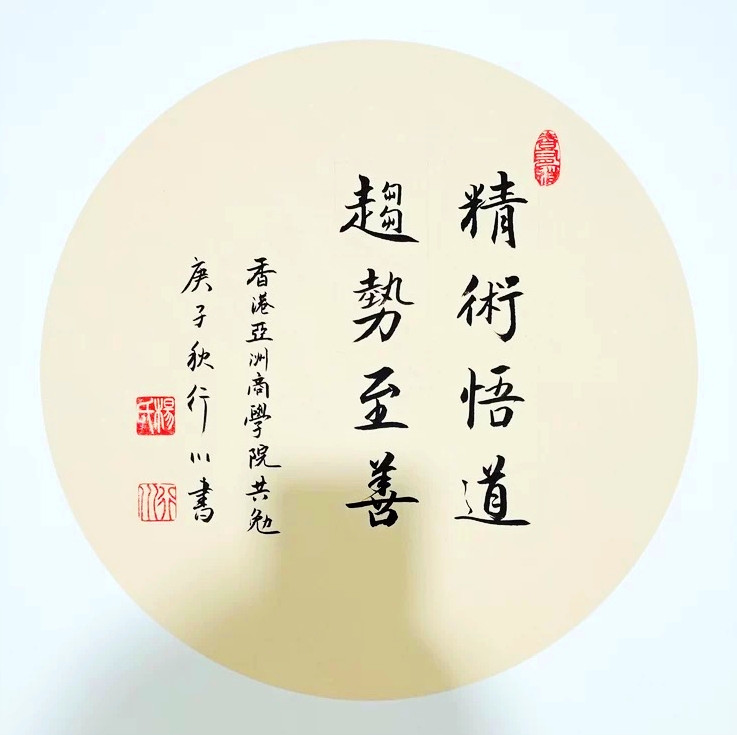 精術悟道
趨勢至善
香港亞洲商學院共勉
庚子秋行川書